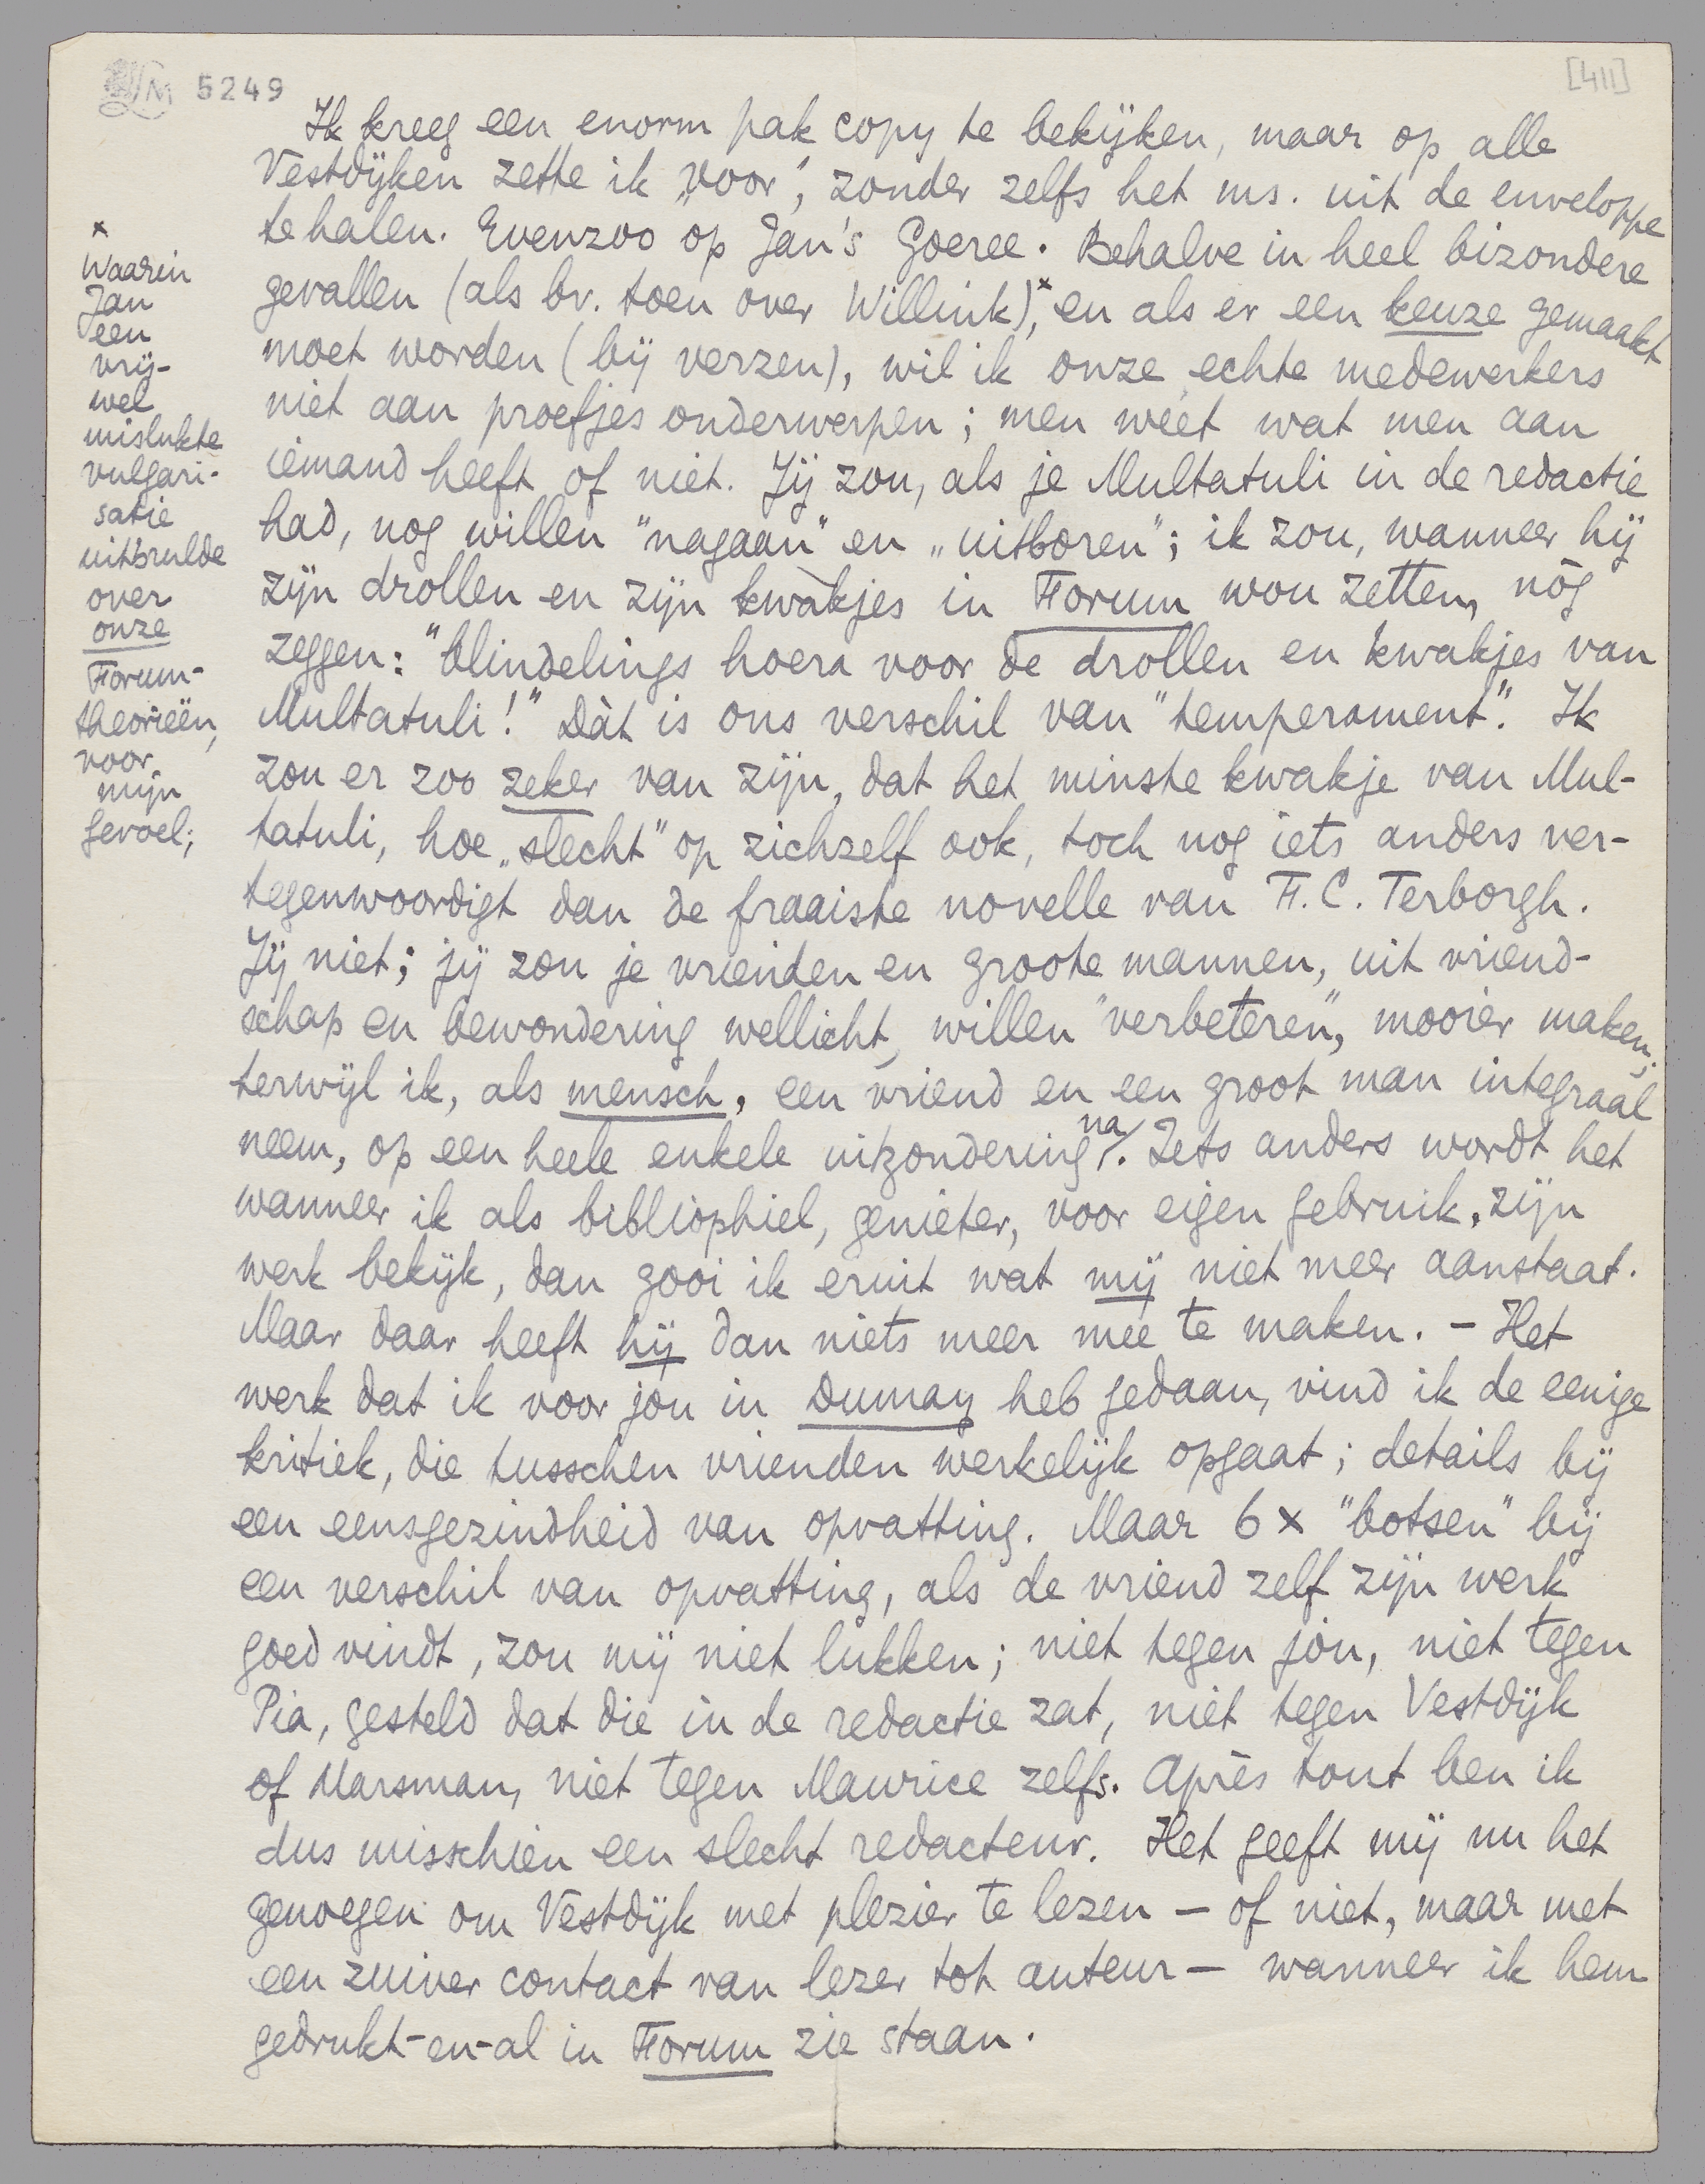 LM 5249
[411]
Ik kreeg een enorm pak copy te bekijken, maar op alle
Vestdijken zette ik „voor", zonder zelfs het ms. uit de enveloppe
te halen. Evenzoo op Jan's Goeree. Behalve in heel bizondere
gevallen (als bv. toen over Willink),x en als er een keuze gemaakt
moet worden (bij verzen), wil ik onze echte medewerkers
niet aan proefjes onderwerpen; men wéét wat men aan
iemand heeft of niet. Jij zou, als je Multatuli in de redactie
had, nog willen "nagaan" en „uitboren"; ik zou, wanneer hij
zijn drollen en zijn kwakjes in Forum wou zetten, nòg
zeggen: "blindelings hoera voor de drollen en kwakjes van
Multatuli!" Dàt is ons verschil van "temperament". Ik
zou er zoo zeker van zijn, dat het minste kwakje van Mul-
tatuli, hoe „slecht" op zichzelf ook, toch nog iets anders ver-
tegenwoordigt dan de fraaiste novelle van F.C. Terborgh.
Jij niet; jij zou je vrienden en groote mannen, uit vriend-
schap en bewondering wellicht, willen "verbeteren", mooier maken;
terwijl ik, als mensch, een vriend en een groot man integraal
neem, op een heele enkele uitzondering na. Iets anders wordt het
wanneer ik als bibliophiel, genieter, voor eigen gebruik, zijn
werk bekijk, dan gooi ik eruit wat mij niet meer aanstaat.
Maar daar heeft hij dan niets meer mee te maken. — Het
werk dat ik voor jou in Dumay heb gedaan, vind ik de eenige
kritiek, die tusschen vrienden werkelijk opgaat; details bij
een eensgezindheid van opvatting. Maar 6 x "botsen" bij
een verschil van opvatting, als de vriend zelf zijn werk
goed vindt, zou mij niet lukken; niet tegen jou, niet tegen
Pia, gesteld dat die in de redactie zat, niet tegen Vestdijk
of Marsman, niet tegen Maurice zelfs. Après tout ben ik
dus misschien een slecht redacteur. Het geeft mij nu het
genoegen om Vestdijk met plezier te lezen — of niet, maar met
een zuiver contact van lezer tot auteur — wanneer ik hem
gedrukt-en-al in Forum zie staan.
x
Waarin
Jan
een
vrij-
wel
mislukte
vulgari-
satie
uitbrulde
over
onze
Forum-
theorieën,
voor
mijn
gevoel;